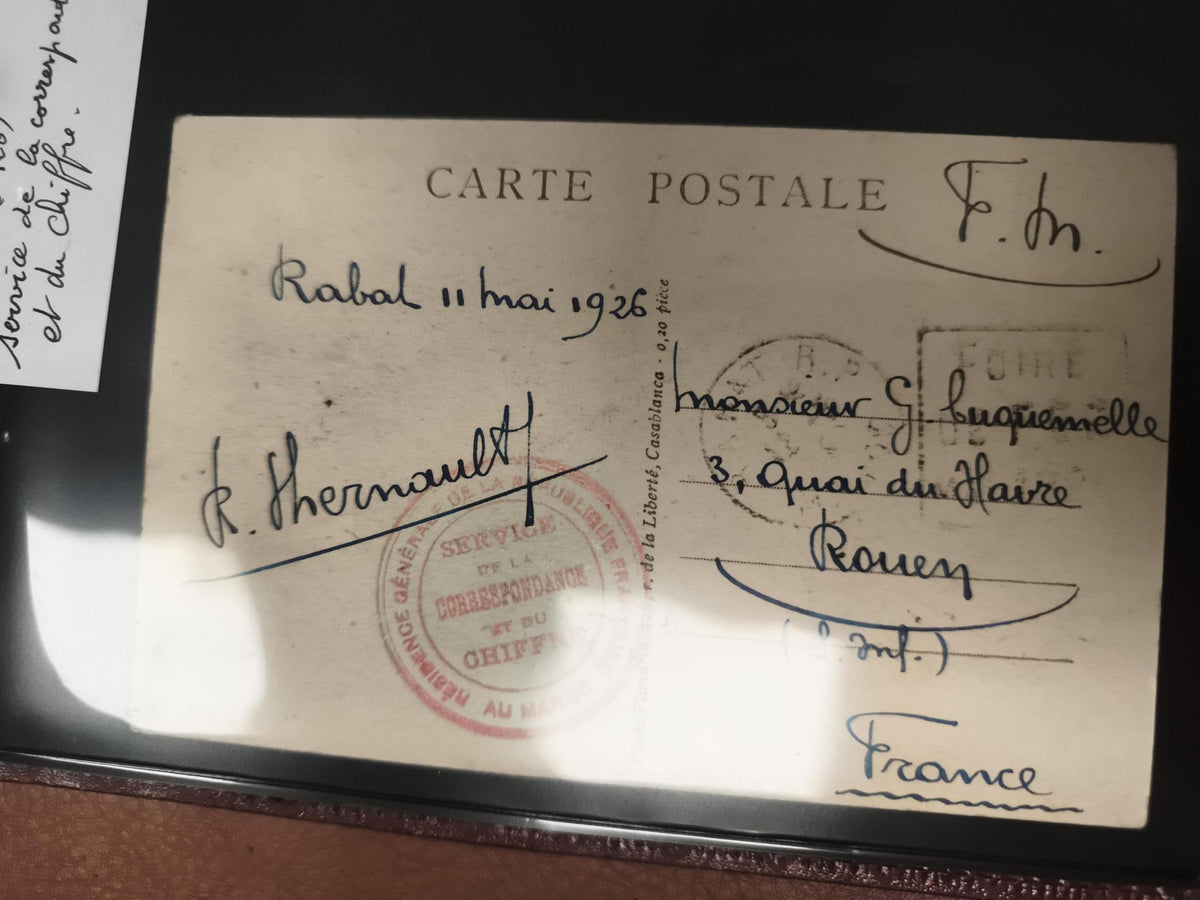 service de la correspond
et du chiffre.
CARTE POSTALE
F. M.
Rabat 11 mai 1926
R. Thernault
RÉSIDENCE GÉNÉRALE DE LA RÉPUBLIQUE FRANÇAISE
AU MAROC
SERVICE
DE LA
CORRESPONDANCE
ET DU
CHIFFRE
de la Liberté, Casablanca - 0,20 pièce
R.P.
FOIRE
Monsieur G. Luquemelle
3, Quai du Havre
Rouen
(S. Inf.)
France